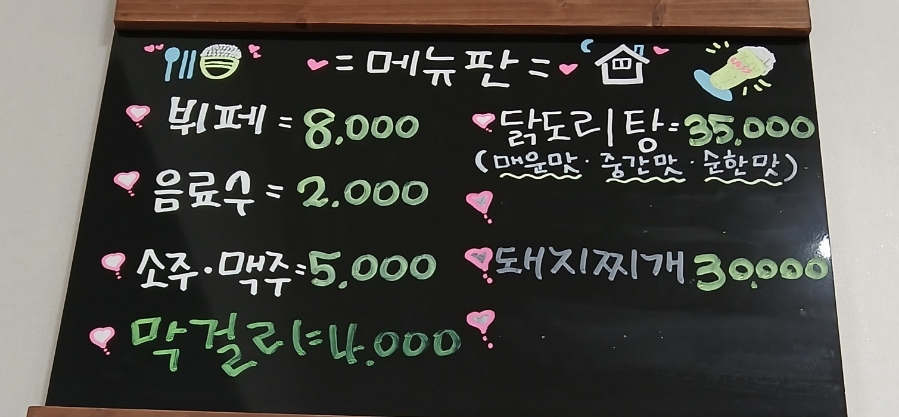 = 메뉴판 =
뷔페 = 8,000
음료수 = 2.000
소주·맥주=5,000
막걸리=4.000
닭도리탕=35,000
(매운맛·중간맛·순한맛)
돼지찌개 30,000